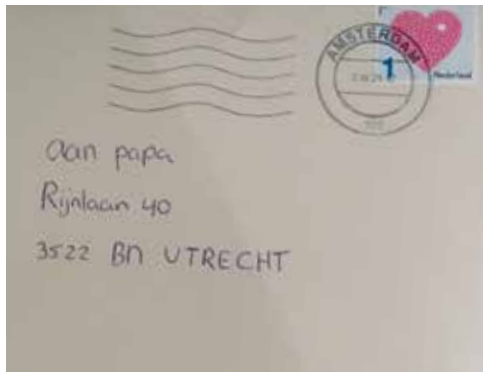 AMSTERDAM
1
Nederland
Aan papa
Rijnlaan 40
3522 BN UTRECHT